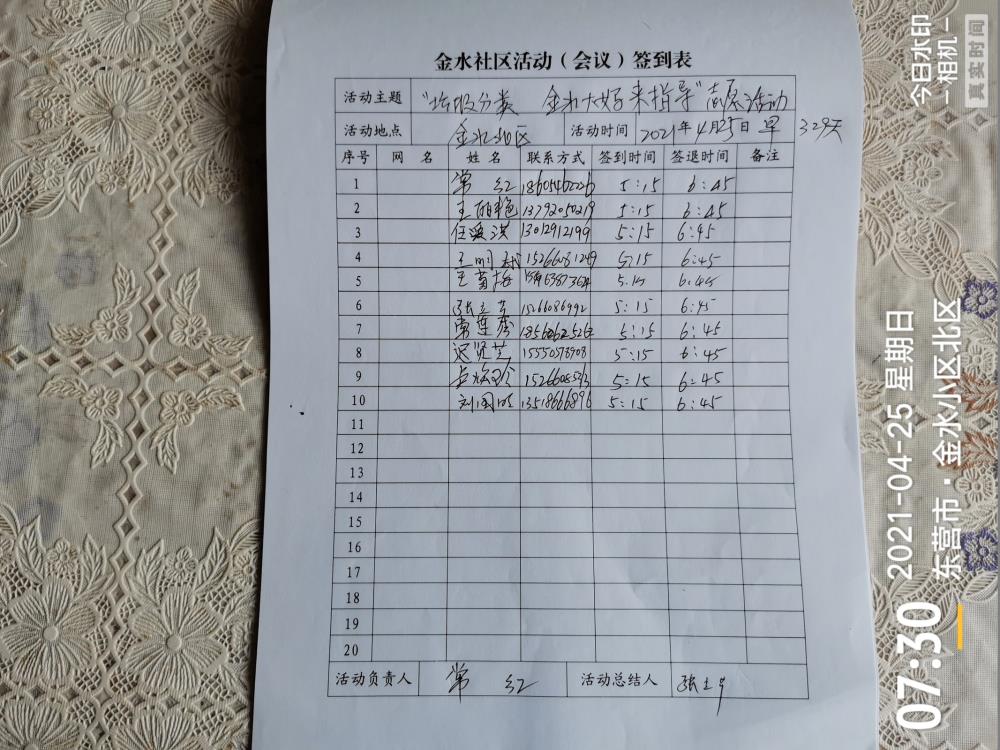 金水社区活动（会议）签到表
活动主题 "垃圾分类 金水大好来指导"志愿活动
活动地点 金水北区 活动时间 2021年4月25日 早 329天
序号 网 名 姓 名 联系方式 签到时间 签退时间 备注
1 常红 5:15 6:45
2 王丽艳 13792050219 5:15 6:45
3 13012912199 5:15 6:45
4 15266081249 5:15 6:45
5 王 梅 5:15 6:45
6 15266086992 5:15 6:45
7 5:15 6:45
8 15550578908 5:15 6:45
9 5:15 6:45
10 刘国旺 13518666896 5:15 6:45
11
12
13
14
15
16
17
18
19
20
活动负责人 常 红 活动总结人
07:30
2021-04-25 星期日
东营市·金水小区北区
今日水印
-相机-
真实时间